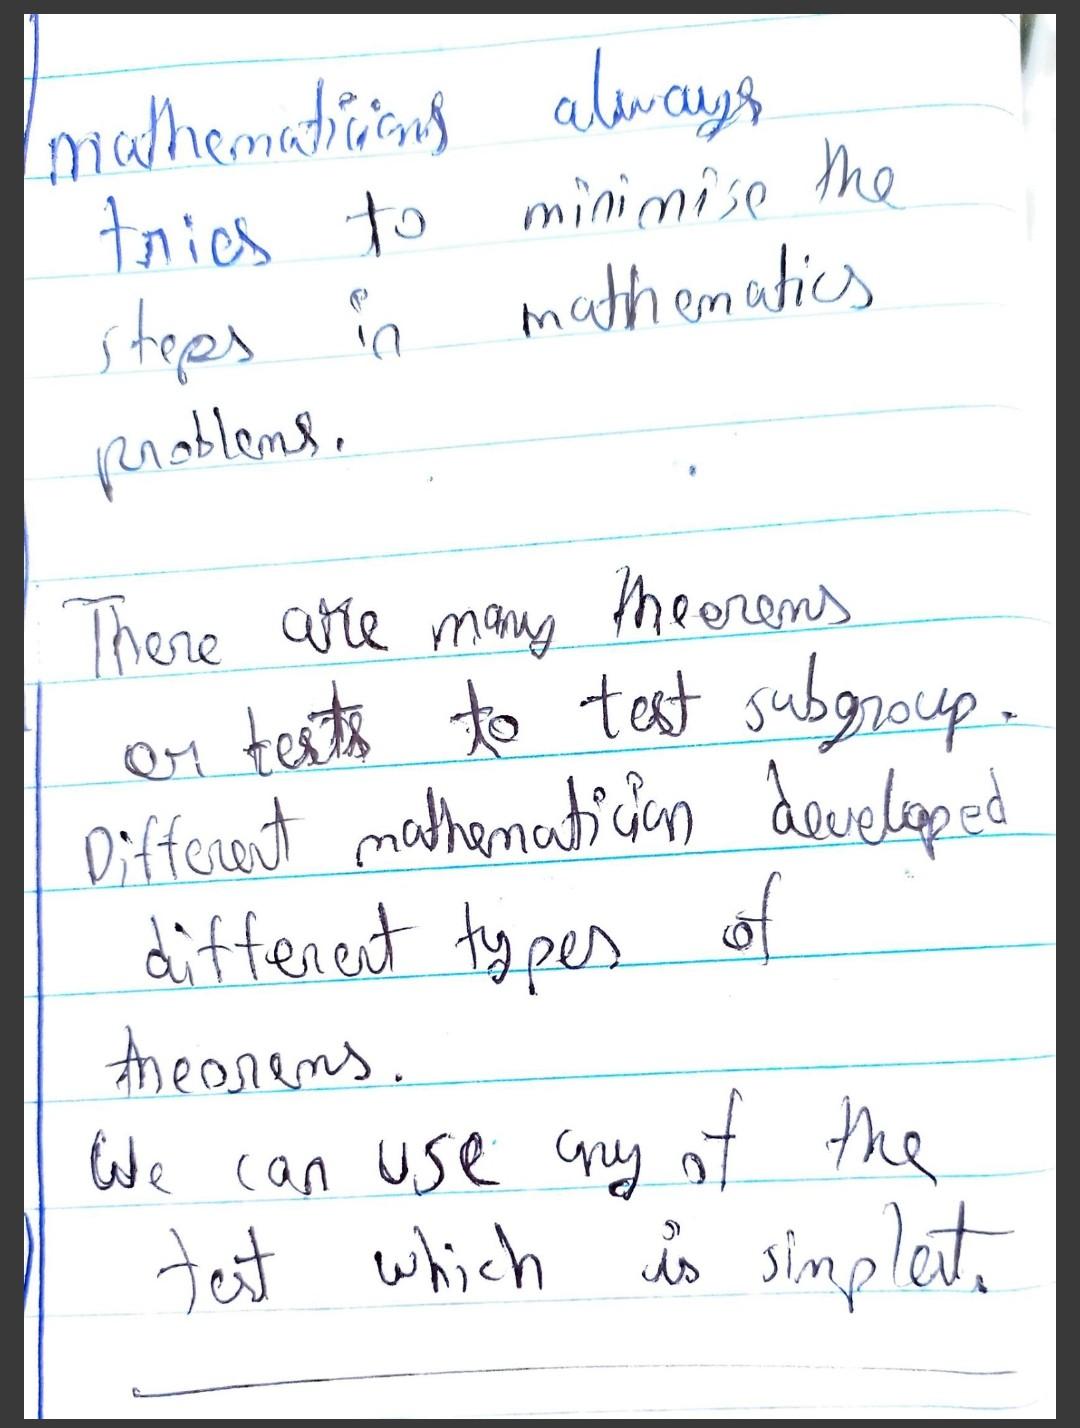 mathematicians always
tries to minimise the
steps in mathematics
problems.
There are many theorems
or tests to test subgroup.
Different mathematician developed
different types of
theorems.
We can use any of the
test which is simplest.